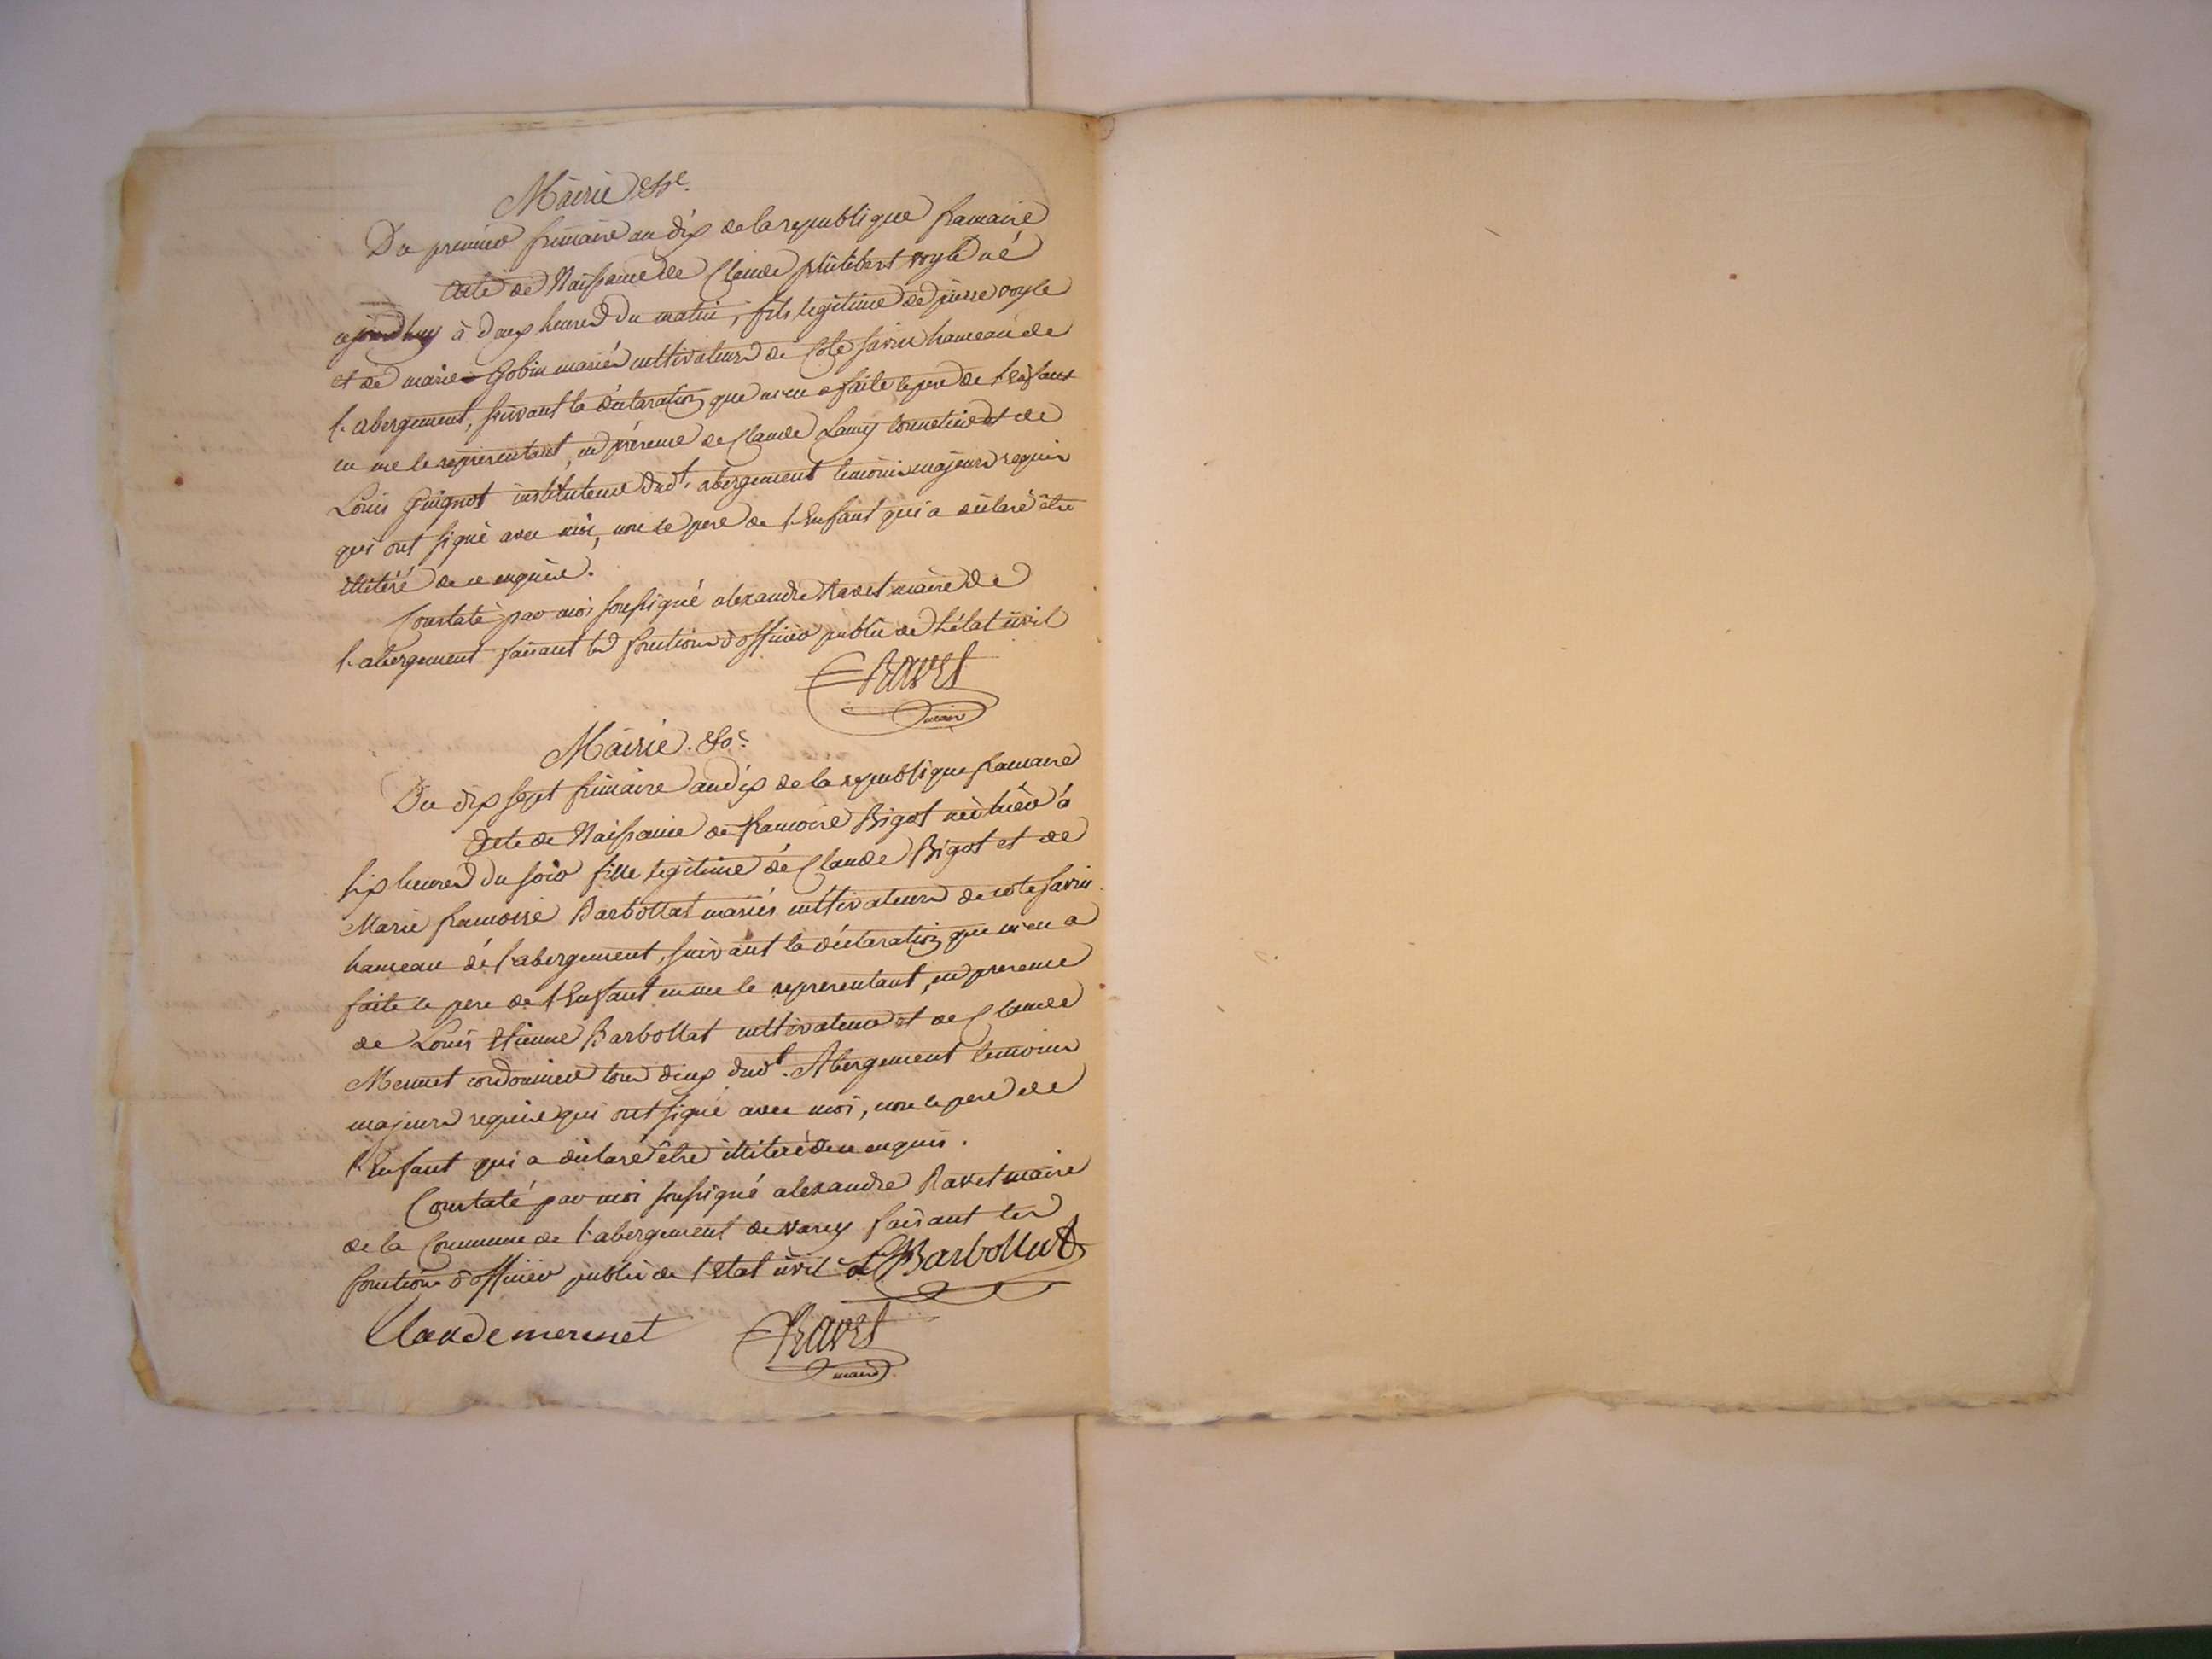 Mairie &c.
Du premier frimaire an dix de la republique francaise
Acte de Naissance de Claude philibert voyle né
ajourdhuy à deux heures du matin, fils legitime de pierre voyle
et de marie Gobin mariés cultivateurs de Cote savin hameau de
l'abergement, suivant la déclaration que m'en a faite le pere de l'enfant
en me le représentant, en présence de Claude Lamy tonnelier et de
Louis Guignot instituteur dudt. abergement temoins majeurs requis
qui ont signé avec moi, non le pere de l'Enfant qui a déclaré être
illitéré de ce enquise.
Constaté par moi soussigné alexandre Ravet maire de
l'abergement faisant les fonctions d'officier public de l'état civil
Ravet
maire
Mairie. &c.
Du dix sept frimaire an dix de la republique francaise
Acte de Naissance de francoise Bigot née hier à
six heures du soir fille legitime de Claude Bigot et de
Marie francoise Barbollat mariés cultivateurs de cote savin
hameau de l'abergement, suivant la déclaration que m'en a
faite le pere de l'Enfant en me le representant, en presence
de Louis Etienne Barbollat cultivateur et de Claude
Mermet cordonnier tous deux dudt. Abergement temoins
majeurs requis qui ont signé avec moi, non le pere de
l'Enfant qui a déclaré être illiteré de ce enquis.
Constaté par moi soussigné alexandre Ravet maire
de la Commune de l'abergement de varey faisant les
fonctions d'officier public de l'etat civil L Barbollat
Claude mermet Ravet
maire